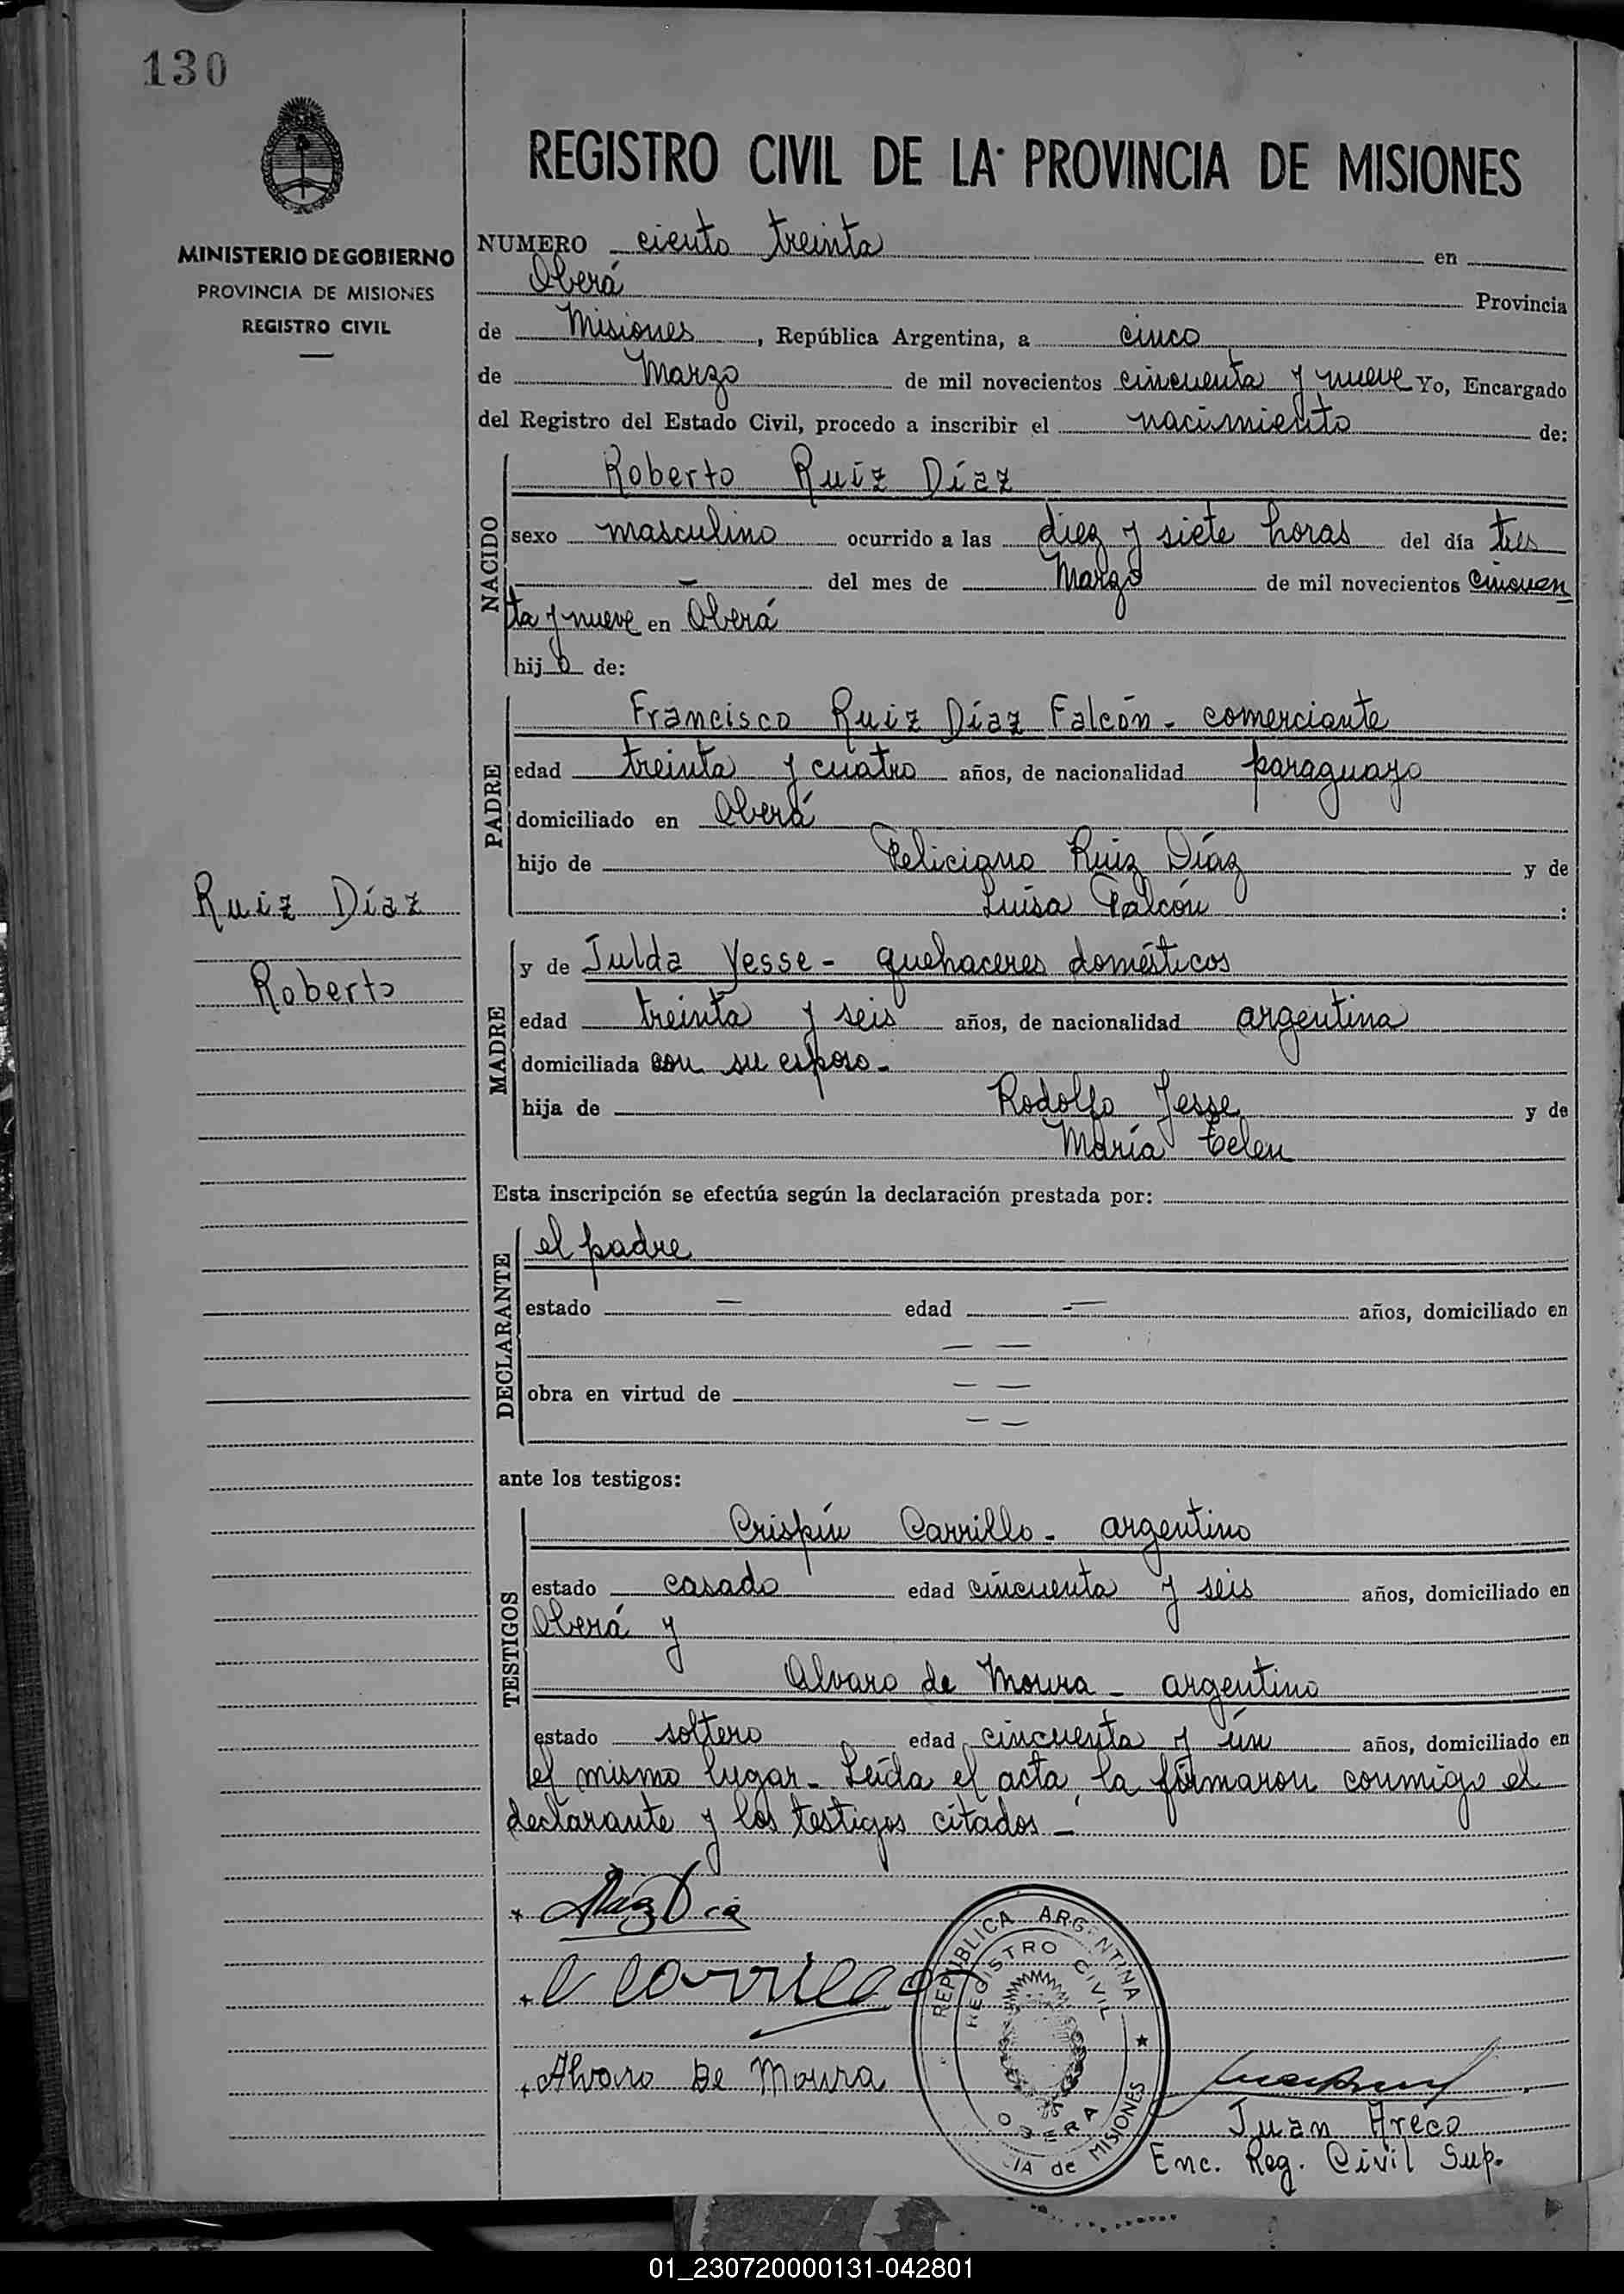 130
MINISTERIO DE GOBIERNO
PROVINCIA DE MISIONES
REGISTRO CIVIL
REGISTRO CIVIL DE LA PROVINCIA DE MISIONES
NUMERO ciento treinta en
Oberá Provincia
de Misiones, República Argentina, a cinco
de Marzo de mil novecientos cincuenta y nueve Yo, Encargado
del Registro del Estado Civil, procedo a inscribir el nacimiento de:
NACIDO
Roberto Ruiz Díaz
sexo masculino ocurrido a las diez y siete horas del día tres
– del mes de Marzo de mil novecientos cincuen
ta y nueve en Oberá
hijo de:
PADRE
Francisco Ruiz Díaz Falcón - comerciante
edad treinta y cuatro años, de nacionalidad paraguayo
domiciliado en Oberá
hijo de Feliciano Ruiz Díaz y de
Luisa Falcón :
Ruiz Díaz
Roberto
MADRE
y de Julda Yesse - quehaceres domésticos
edad treinta y seis años, de nacionalidad argentina
domiciliada con su esposo -
hija de Rodolfo Jesse y de
María Celeu
Esta inscripción se efectúa según la declaración prestada por:
DECLARANTE
el padre
estado — edad — años, domiciliado en
— —
obra en virtud de — —
— —
ante los testigos:
TESTIGOS
Crispín Carrillo - argentino
estado casado edad cincuenta y seis años, domiciliado en
Oberá y
Alvaro de Moura - argentino
estado soltero edad cincuenta y ún años, domiciliado en
el mismo lugar - Leída el acta la firmaron conmigo el
declarante y los testigos citados -
C Carrillo
Alvaro De Moura
REPUBLICA ARGENTINA
REGISTRO CIVIL
OBERA
CIA de MISIONES
Juan Areco
Enc. Reg. Civil Sup.
01_230720000131-042801